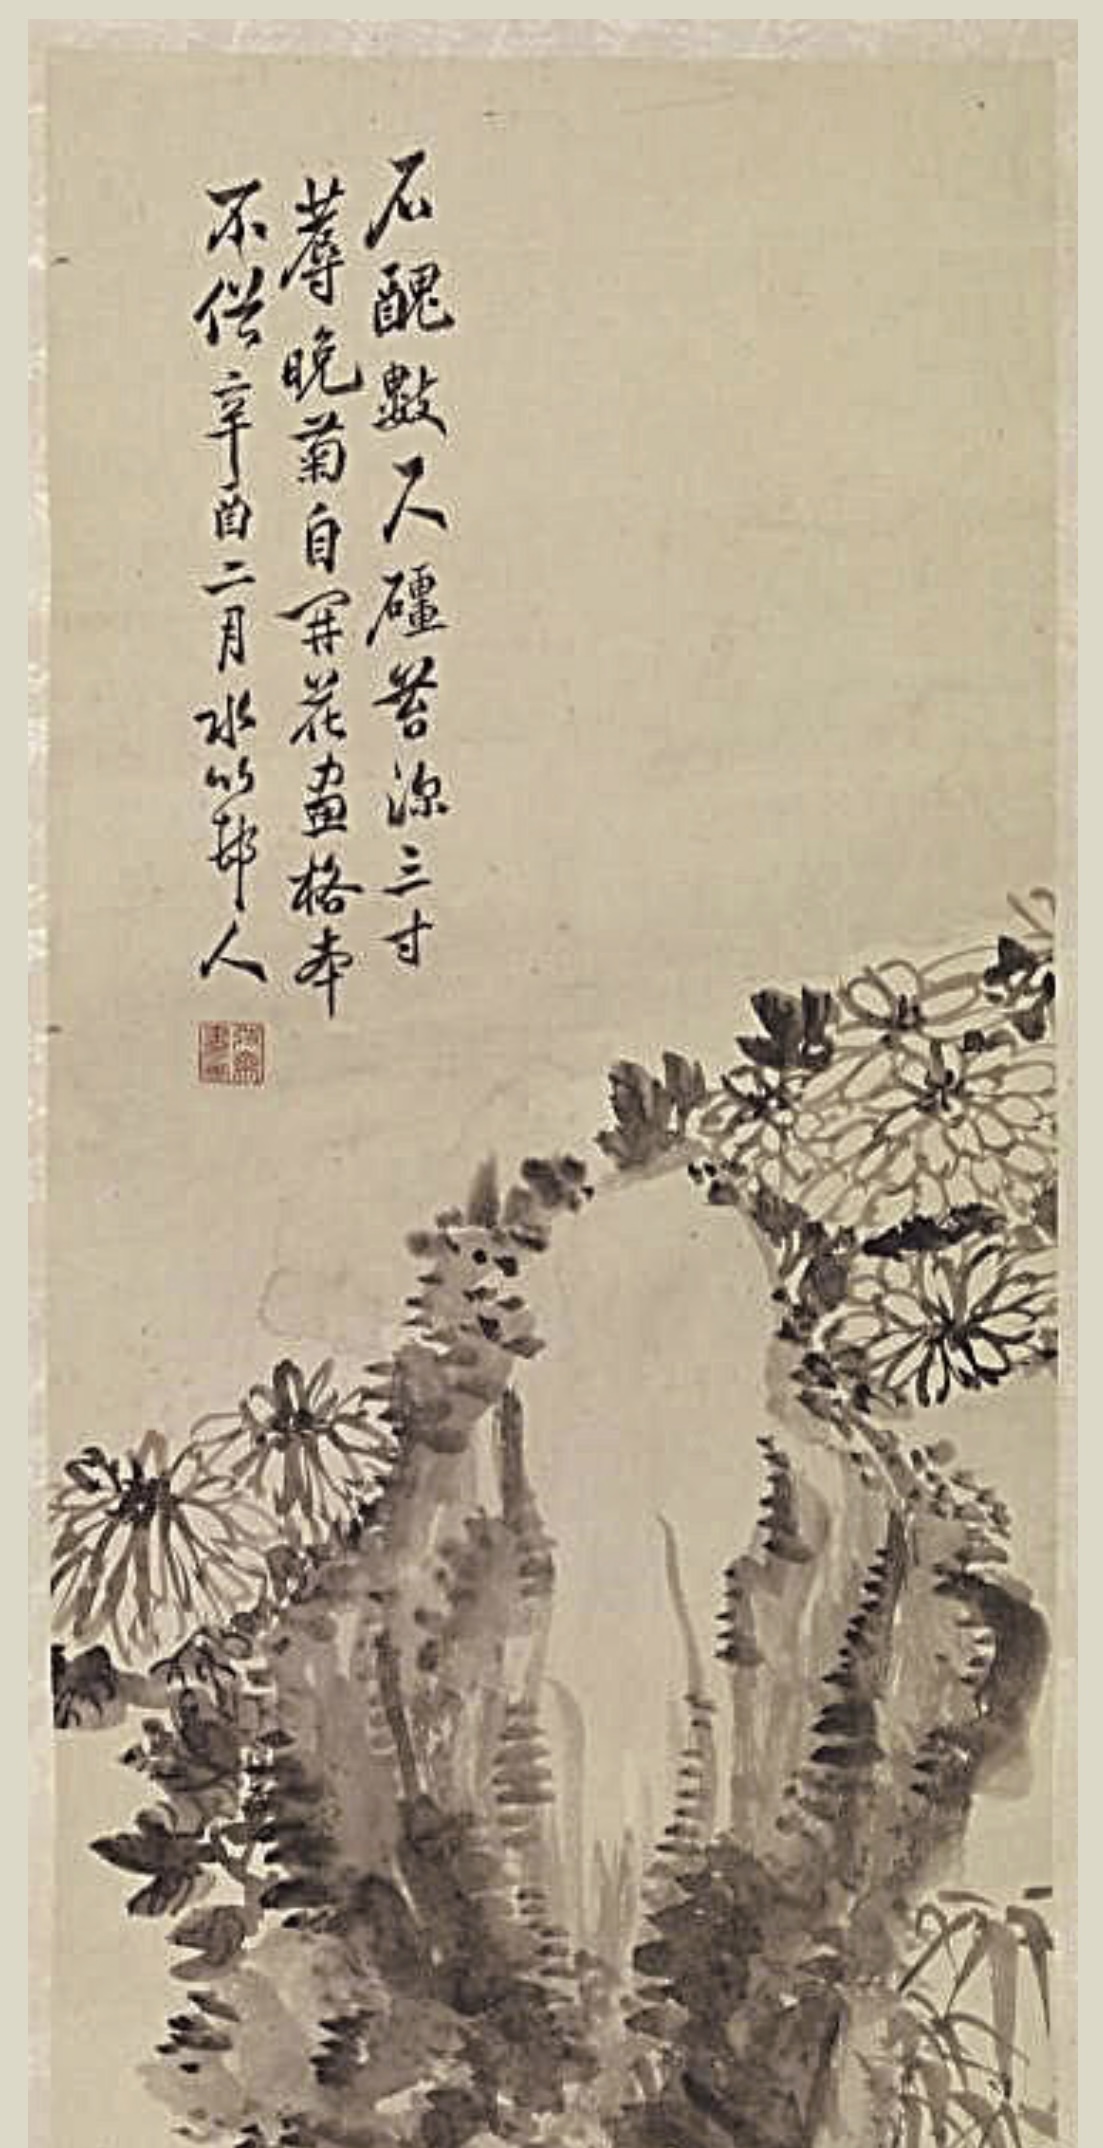 石醜數尺礓苔深三寸
蓐晚菊自開花畫格本
不俗辛酉二月水竹邨人